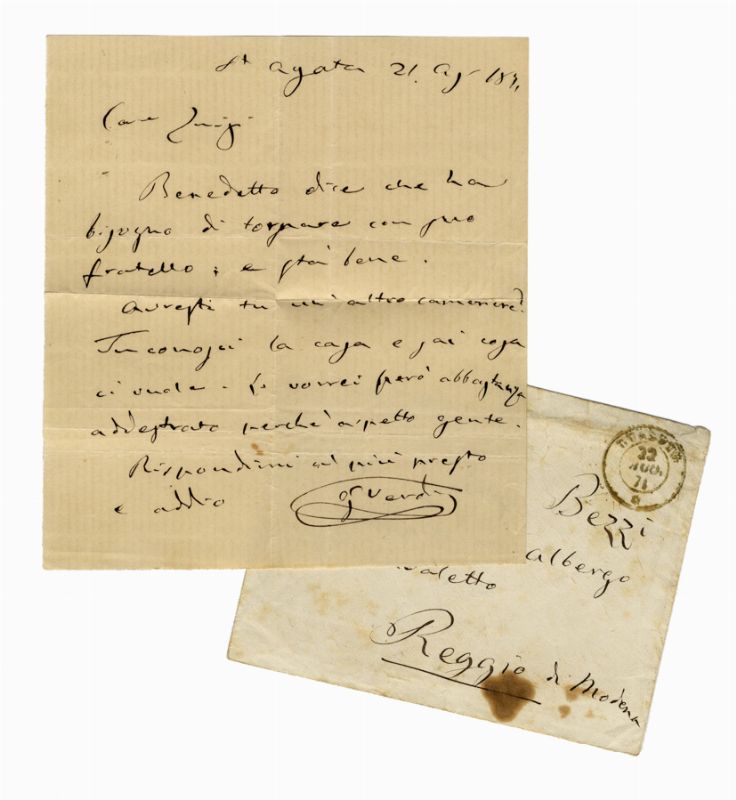 St Agata 21. Ag. 1871
Caro Luigi
Benedetto dice che ha
bisogno di tornare con suo
fratello; e sta bene.
Avresti tu un' altro cameriere?
Tu conosci la casa e sai cosa
ci vuole. Lo vorrei però abbastanza
addestrato perchè aspetto gente.
Rispondimi al più presto
e addio
G Verdi
22
AGO.
71
Bezzi
albergo
Reggio di Modena